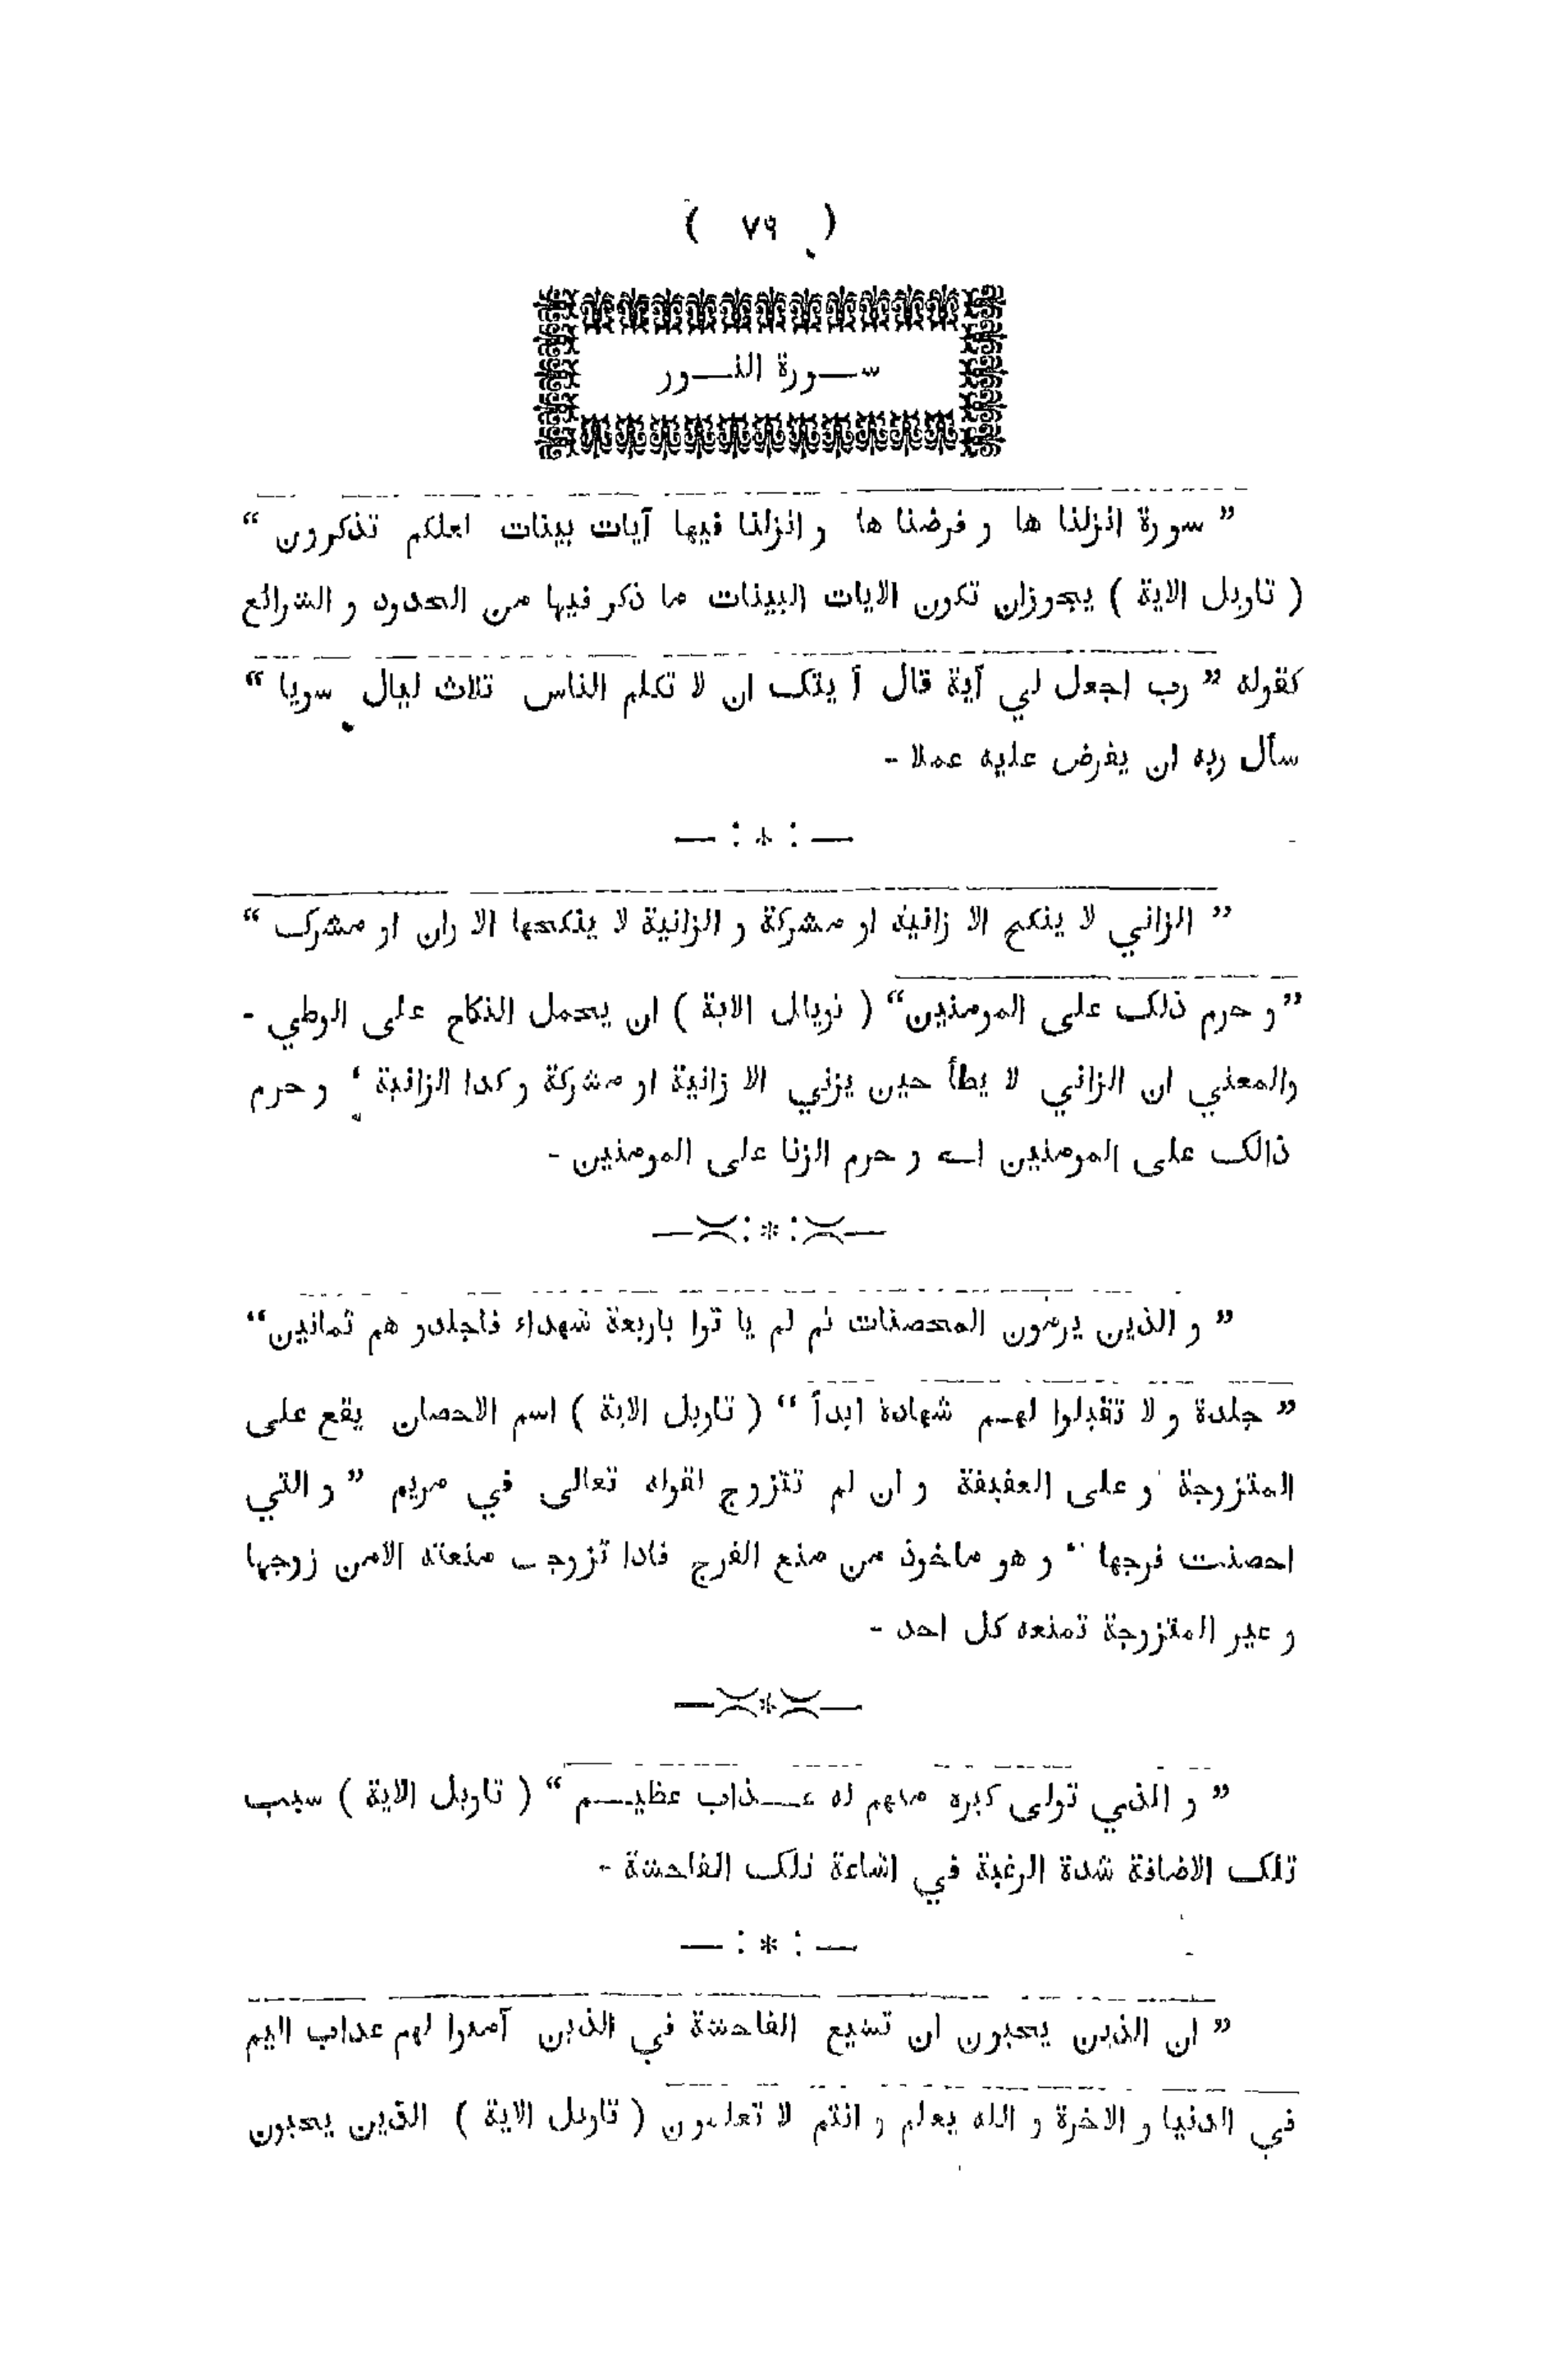 ( ٧٩ )
ســورة النــور
” سورة انزلنا ها و فرضنا ها و انزلنا فيها آيات بينات لعلكم تذكرون “
( تاويل الاية ) يجوزان تكون الايات البينات ما ذكر فيها من الحدود و الشرائع
كقوله ” رب اجعل لي آية قال آ يتك ان لا تكلم الناس ثلاث ليال سويا “
سأل ربه ان يفرض عليه عملا -
— : * : —
” الزاني لا ينكح الا زانية او مشركة و الزانية لا ينكحها الا زان او مشرك “
” و حرم ذلك على المومنين“ ( تويال الاية ) ان يحمل النكاح على الوطي -
والمعني ان الزاني لا يطأ حين يزني الا زانية او مشركة و كذا الزانية ‘ و حرم
ذالك على المومنين اے و حرم الزنا على المومنين -
—:*:—
” و الذين يرمون المحصنات ثم لم يا توا باربعة شهداء فاجلدو هم ثمانين“
” جلدة و لا تقبلوا لهـم شهادة ابدأ “ ( تاويل الاية ) اسم الاحصان يقع على
المتزوجة و على العفيفة و ان لم تتزوج لقوله تعالى في مريم ” و التي
احصنت فرجها “ و هو ماخوذ من منع الفرج فاذا تزوجت منعته الامن زوجها
و غير المتزوجة تمنعه كل احد -
—*—
” و الذي تولى كبره منهم له عــذاب عظيــم “ ( تاويل الاية ) سبب
تلك الاضافة شدة الرغبة في اشاعة تلك الفاحشة -
— : * : —
” ان الذين يحبون ان تشيع الفاحشة في الذين آمنوا لهم عذاب اليم
في الدنيا و الاخرة و الله يعلم و انتم لا تعلمون ( تاويل الاية ) الذين يحبون